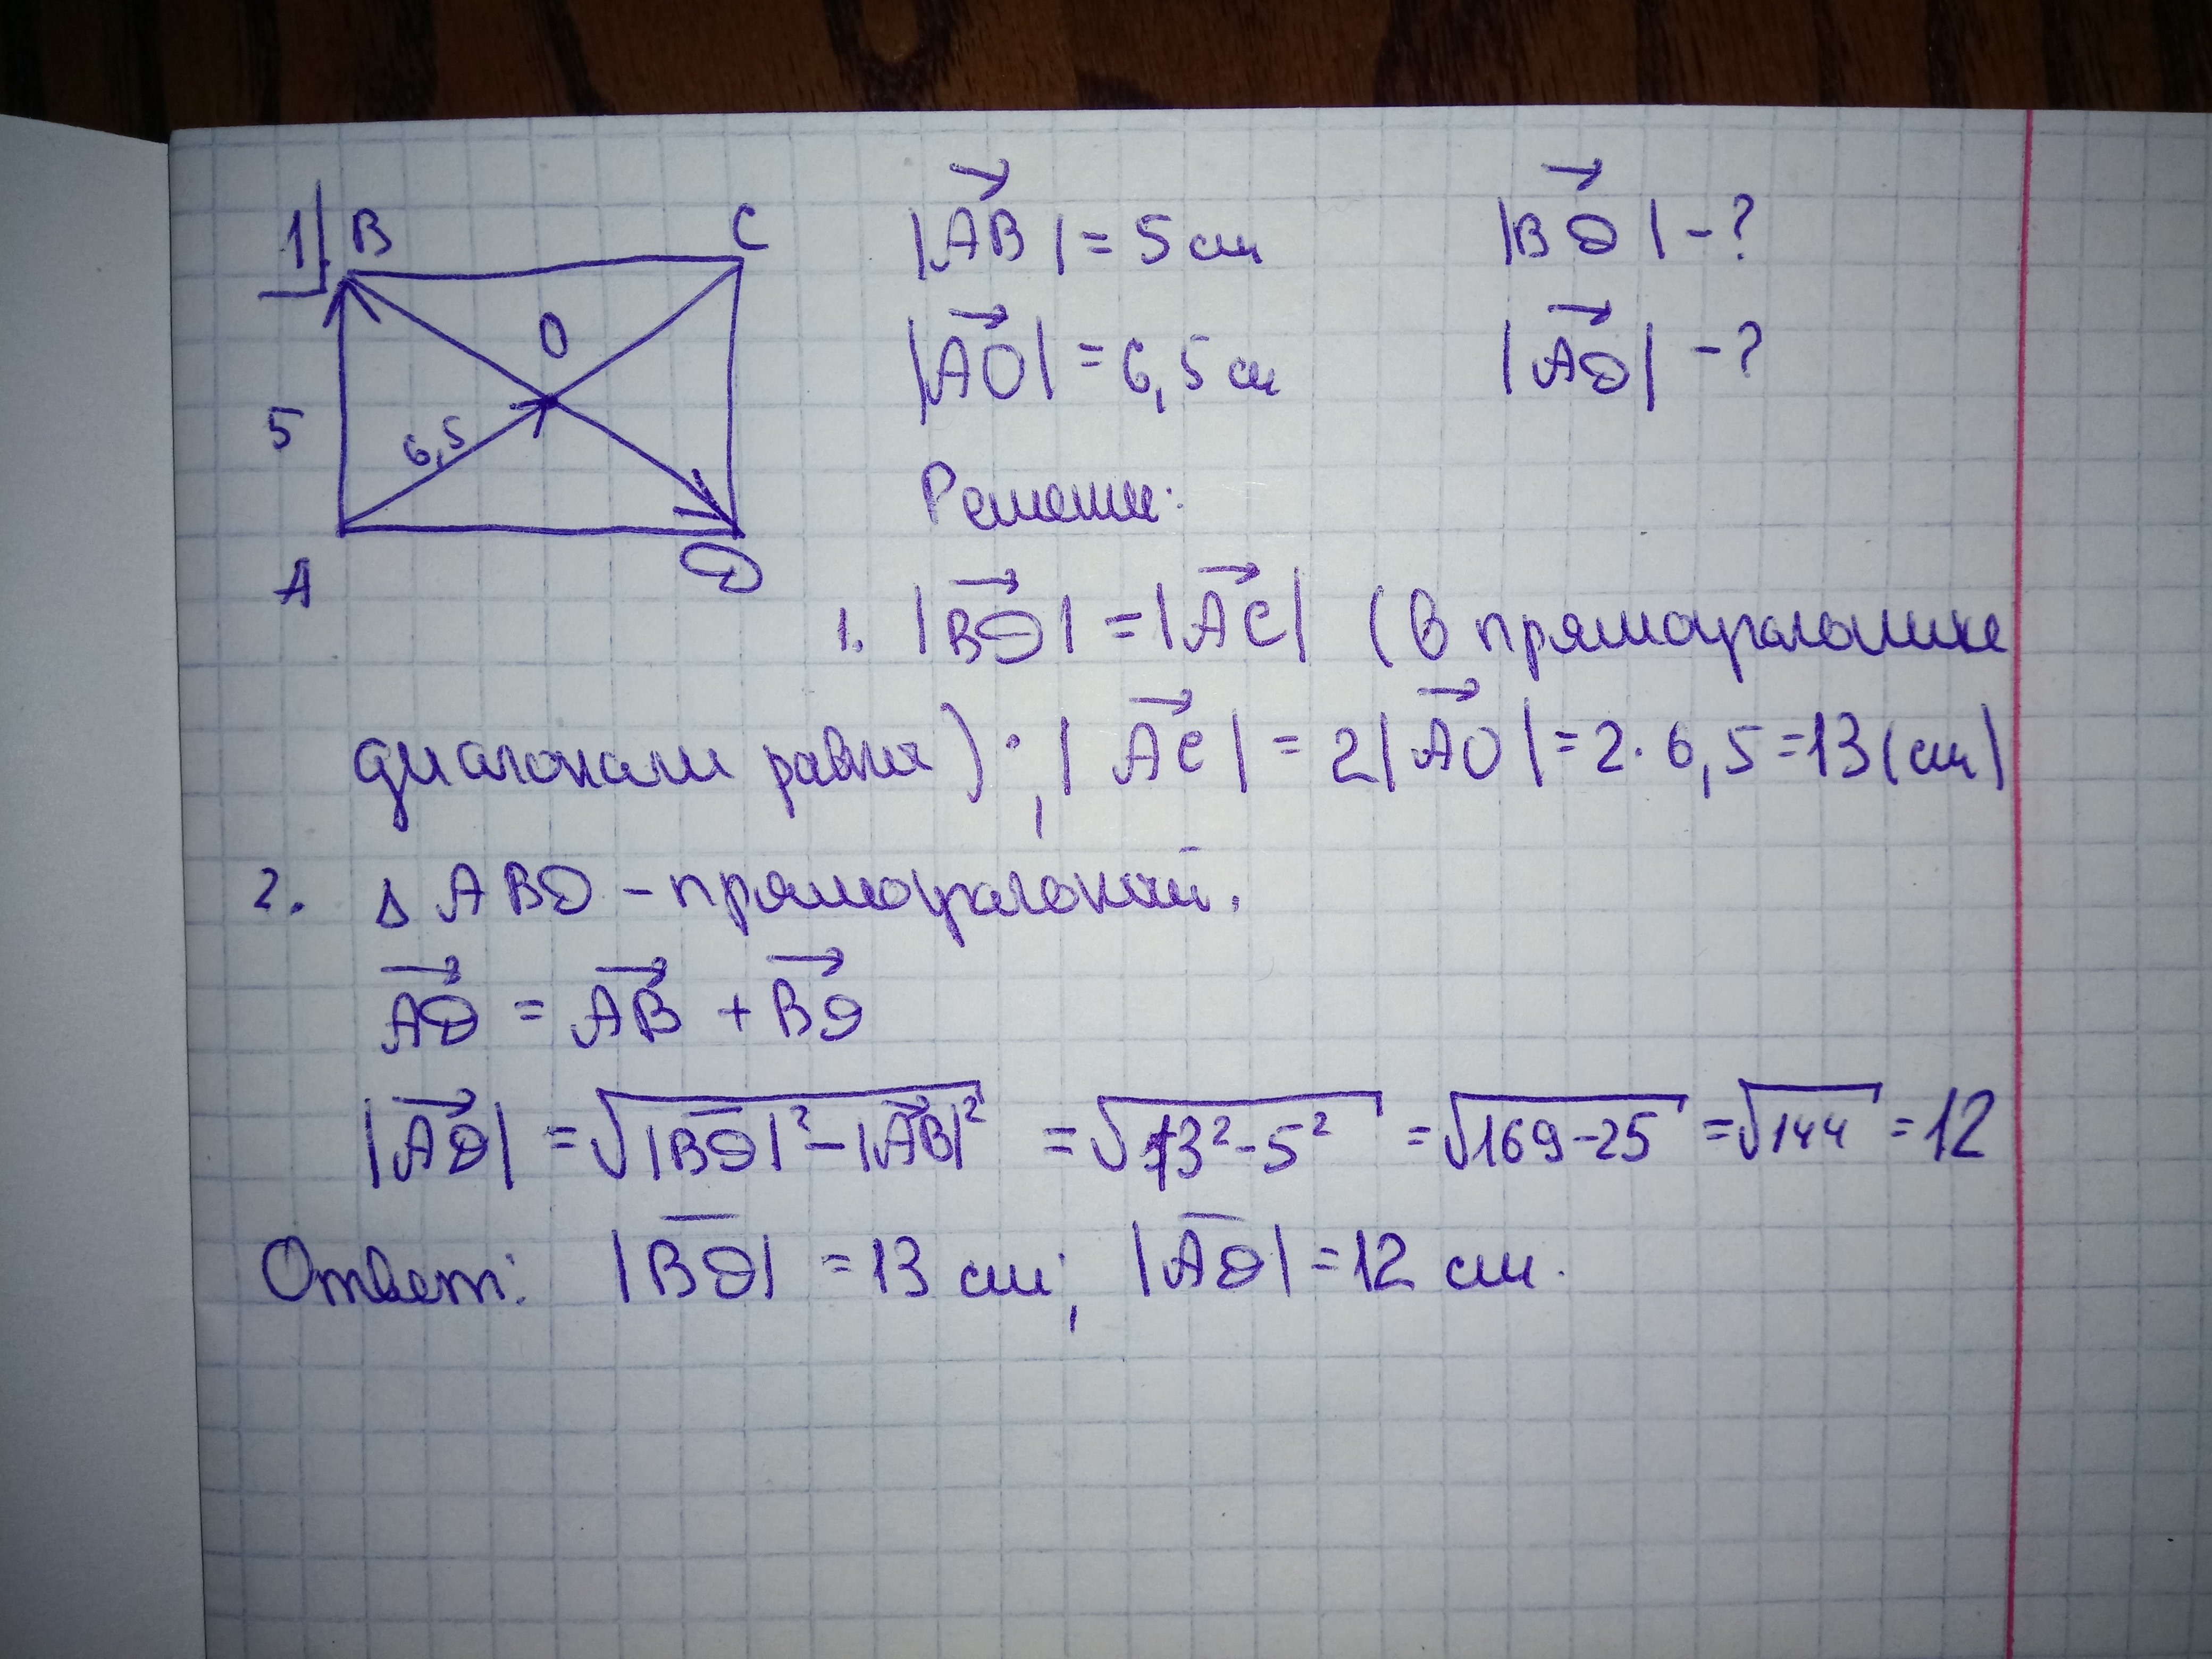 1.
B C
5 6,5 O
A D
|AB| = 5 см |BD| - ?
|AO| = 6,5 см |AD| - ?
Решение:
1. |BD| = |AC| (в прямоугольнике
диагонали равны); |AC| = 2|AO| = 2·6,5 = 13 (см)
2. Δ ABD - прямоугольный.
AD = AB + BD
|AD| = √|BD|² - |AB|² = √13² - 5² = √169-25 = √144 = 12
Ответ: |BD| = 13 см; |AD| = 12 см.